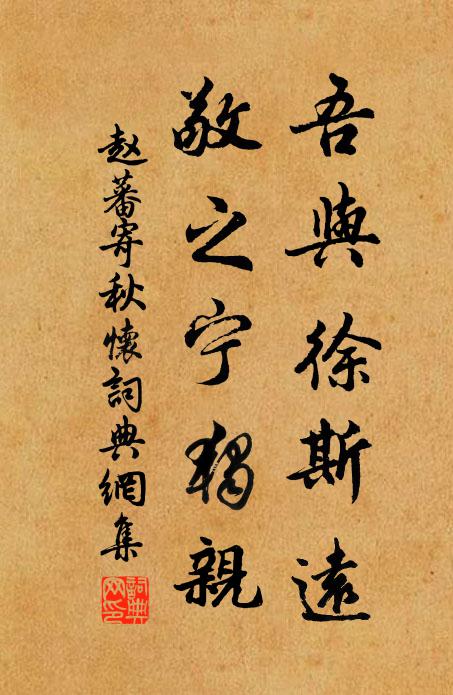 吾與徐斯遠
敬之宁獨親
赵蕃寄秋懷詞典網集
詞典网印